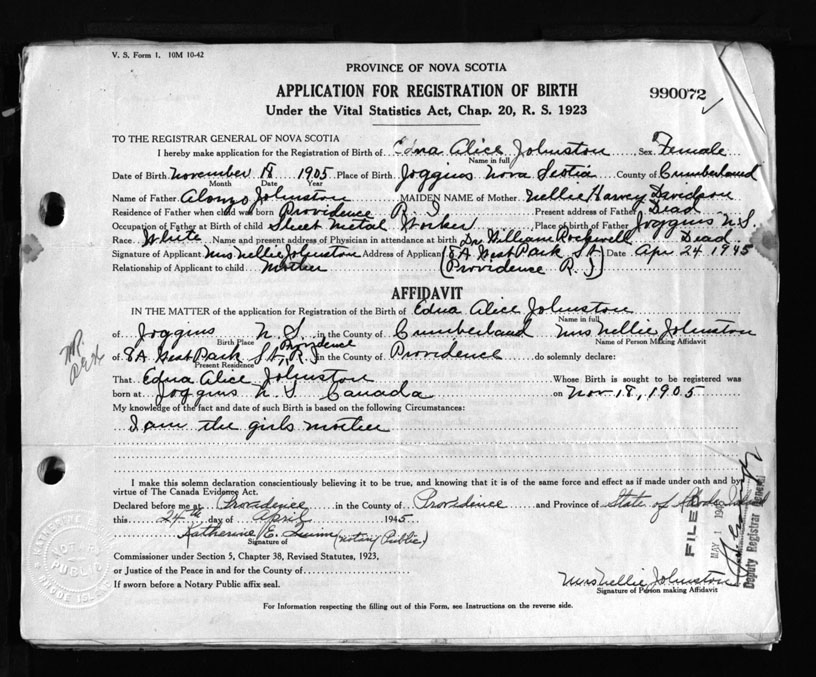 V. S. Form 1. 10M 10-42
PROVINCE OF NOVA SCOTIA
APPLICATION FOR REGISTRATION OF BIRTH
990072
Under the Vital Statistics Act, Chap. 20, R. S. 1923
TO THE REGISTRAR GENERAL OF NOVA SCOTIA
I hereby make application for the Registration of Birth of Edna Alice Johnston Sex Female
Name in full
Date of Birth November 18 1905 Place of Birth Joggins Nova Scotia County of Cumberland
Month Date Year
Name of Father Alonzo Johnston MAIDEN NAME of Mother Nellie Harvey Davidson
Residence of Father when child was born Providence R I Present address of Father Dead
Occupation of Father at Birth of child Sheet Metal Worker Place of birth of Father Joggins N.S.
Race White Name and present address of Physician in attendance at birth Dr William Rockwell Dead
Signature of Applicant Mrs Nellie Johnston Address of Applicant (8A West Park St) Date Apr 24 1945
Relationship of Applicant to child Mother (Providence R.I)
AFFIDAVIT
IN THE MATTER of the application for Registration of the Birth of Edna Alice Johnston
Name in full
of Joggins N.S. in the County of Cumberland Mrs Nellie Johnston
Birth Place Name of Person Making Affidavit
of 8A West Park St, Providence R.I in the County of Providence do solemnly declare:
Present Residence
That Edna Alice Johnston Whose Birth is sought to be registered was
born at Joggins N.S Canada on Nov 18, 1905
My knowledge of the fact and date of such Birth is based on the following Circumstances:
I am the girls mother
I make this solemn declaration conscientiously believing it to be true, and knowing that it is of the same force and effect as if made under oath and by
virtue of The Canada Evidence Act.
Declared before me at Providence in the County of Providence and Province of State of Rhode Island
this 24th day of April 1945
Katherine E. Quinn (Notary Public)
Signature of
Commissioner under Section 5, Chapter 38, Revised Statutes, 1923,
or Justice of the Peace in and for the County of
If sworn before a Notary Public affix seal.
Mrs Nellie Johnston
Signature of Person making Affidavit
For Information respecting the filling out of this Form, see Instructions on the reverse side.
FILED
MAY 1 1945
Deputy Registrar General
KATHERINE
NOTARY
PUBLIC
RHODE ISLAND